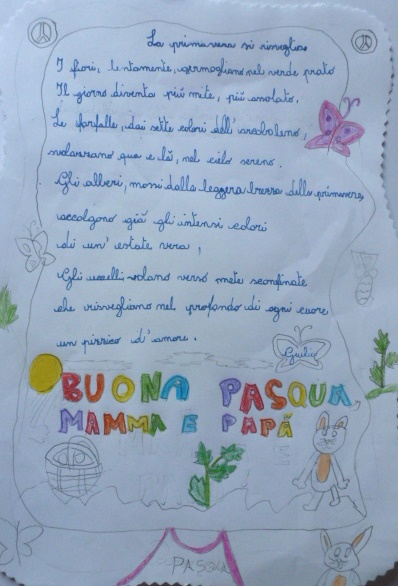 La primavera si risveglia
I fiori, lentamente, germogliano nel verde prato
Il giorno diventa più mite, più assolato.
Le farfalle, dai sette colori dell'arcobaleno,
svolazzano qua e là, nel cielo sereno.
Gli alberi, mossi dalla leggera brezza della primavera,
accolgono già gli intensi colori
di un'estate vera,
Gli uccelli volano verso mete sconfinate
che risvegliano nel profondo di ogni cuore
un pizzico d'amore.
Giulia
BUONA PASQUA
MAMMA E PAPÀ
PASQUA